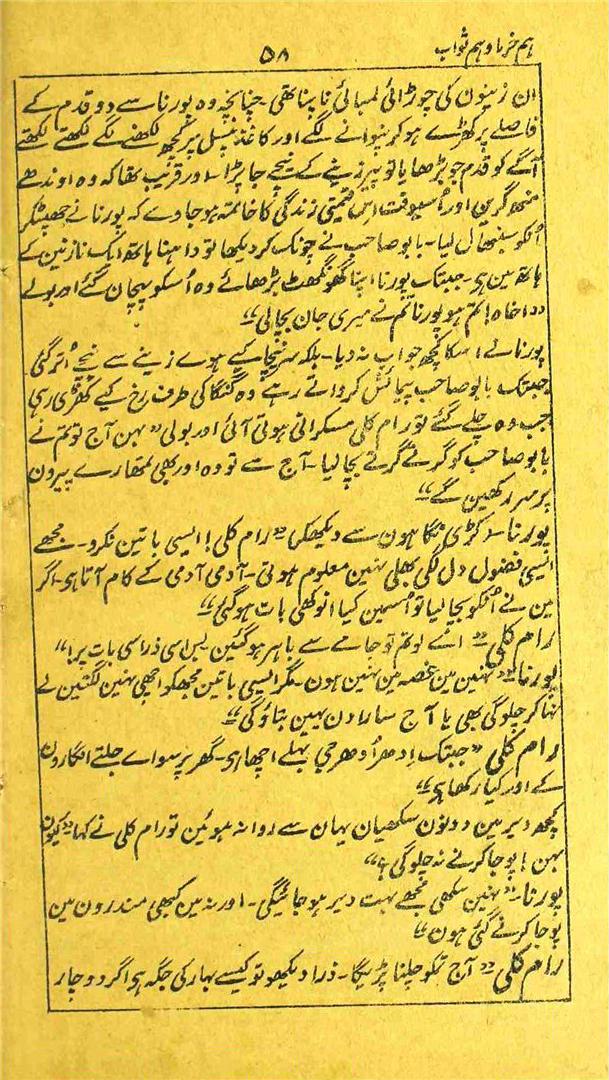 ہم خرما و ہم ثواب
۵۸
ان زینون کی چوڑائی لمبائی ناپنا تھی۔ چنانچہ وہ پورنا سے دو قدم کے
فاصلے پر کھڑے ہو کر نپوانے لگے اور کاغذ پنسل پر کچھ لکھنے لگے لکھتے لکھتے
آگے کو قدم جو بڑھایا تو پیر زینے کے نیچے جا پڑا۔ اور قریب تھا کہ وہ اوندھے
منھ گرین اور اُسیوقت اس قیمتی زندگی کا خاتمہ ہو جاوے کہ پورنا نے جھپٹکر
اُنکو سنبھال لیا۔ بابو صاحب نے چونک کر دیکھا تو داہنا ہاتھ ایک نازنین کے
ہاتھ مین ہی۔ جبتک پورنا اپنا گھونگھٹ بڑھائے وہ اُسکو پہچان گئے اور بولے
”اخاہ! تم ہو پورنا تم نے میری جان بچالی“
پورنا نے اسکا کچھ جواب نہ دیا۔ بلکہ سر نیچا کیے ہوے زینے سے نیچے اُتر گئی
جبتک بابو صاحب پیمائش کرواتے رہے وہ گنگا کی طرف رخ کیے کھڑی رہی
جب وہ چلے گئے تو رام کلی مسکراتی ہوتی آئی اور بولی ”بہن آج تو تم نے
بابو صاحب کو گرتے گرتے بچالیا۔ آج سے تو وہ اور بھی تمھارے پیرون
پر سر رکھین گے“
پورنا۔ (کڑی نگاہون سے دیکھکر) ”رام کلی! ایسی باتین نکرو۔ مجھے
ایسی فضول دل لگی بھلی نہین معلوم ہوتی۔ آدمی آدمی کے کام آتا ہی۔ اگر
مین نے اُنکو بچالیا تو اُسمین کیا انوکھی بات ہو گئی“
رام کلی۔ ”اے لو تم تو جامے سے باہر ہو گئین بس اسی ذرا سی بات پر!“
پورنا۔ ”نہین مین غصہ مین نہین ہون۔ مگر ایسی باتین مجھکو اچھی نہین لگتین لے
نہا کر چلو گی بھی یا آج سارا دن یہین بتاؤگی“
رام کلی ”جبتک اِدھر اُدھر جی بہلے اچھا ہی۔ گھر پر سواے جلتے انگارون
کے اور کیا رکھا ہی“
کچھ دیر مین دونون سکھیان یہان سے روانہ ہوئین تو رام کلی نے کہا ”کیون
بہن! پوجا کرنے نہ چلوگی؟“
پورنا۔ ”نہین سکھی مجھے بہت دیر ہو جائیگی۔ اور نہ مین کبھی مندرون مین
پوجا کرنے گئی ہون“
رام کلی ”آج تمکو چلنا پڑیگا۔ ذرا دیکھو تو کیسے بہار کی جگہ ہی اگر دو چار